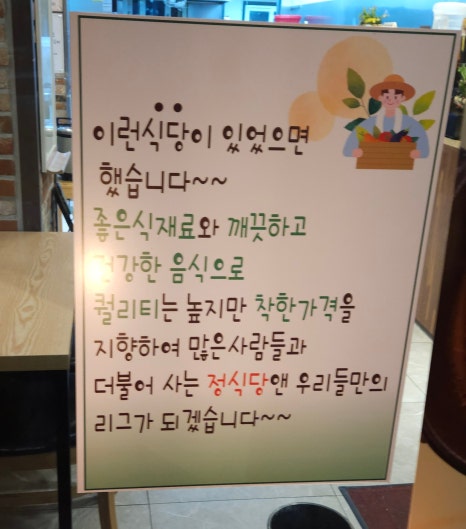 이런식당이 있었으면
했습니다~~
좋은식재료와 깨끗하고
건강한 음식으로
퀄리티는 높지만 착한가격을
지향하여 많은사람들과
더불어 사는 정식당앤 우리들만의
리그가 되겠습니다~~